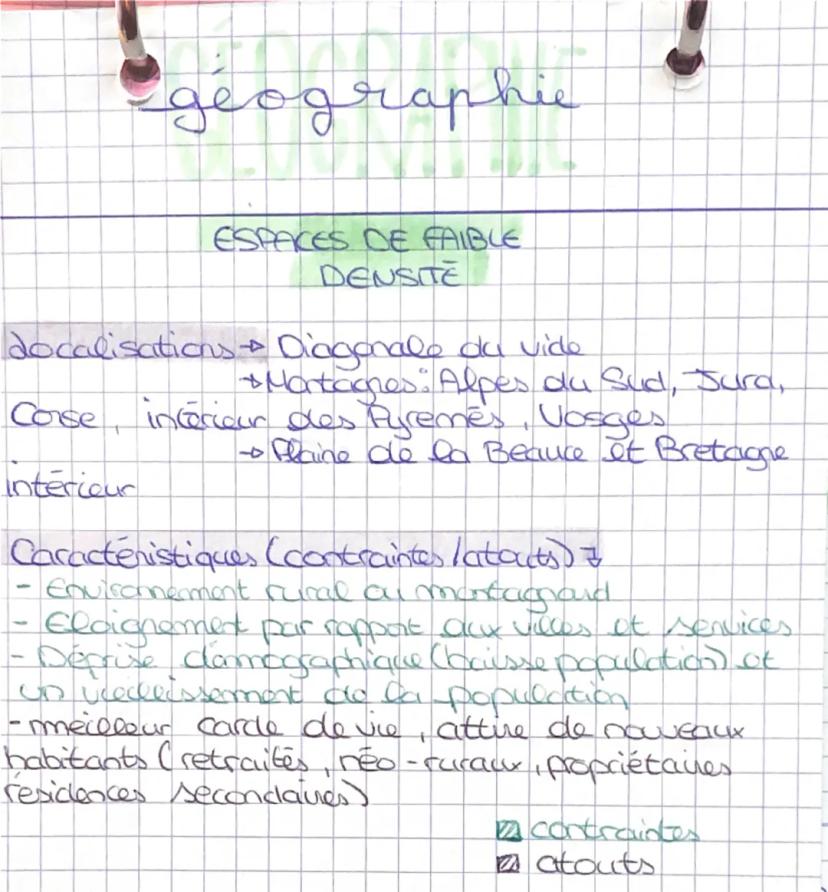 géographie
ESPACES DE FAIBLE
DENSITÉ
Localisations → Diagonale du vide
→ Montagnes : Alpes du Sud, Jura,
Corse, intérieur des Pyrenées, Vosges
→ Plaine de la Beauce et Bretagne
intérieur
Caractéristiques (contraintes / atouts) ↴
- Environnement rural ou montagnard
- Eloignement par rapport aux villes et services
- Déprise démographique (baisse population) et
un vieillissement de la population
- meilleur cadre de vie, attire de nouveaux
habitants (retraités, néo-ruraux, propriétaires
résidences secondaires)
contraintes
atouts